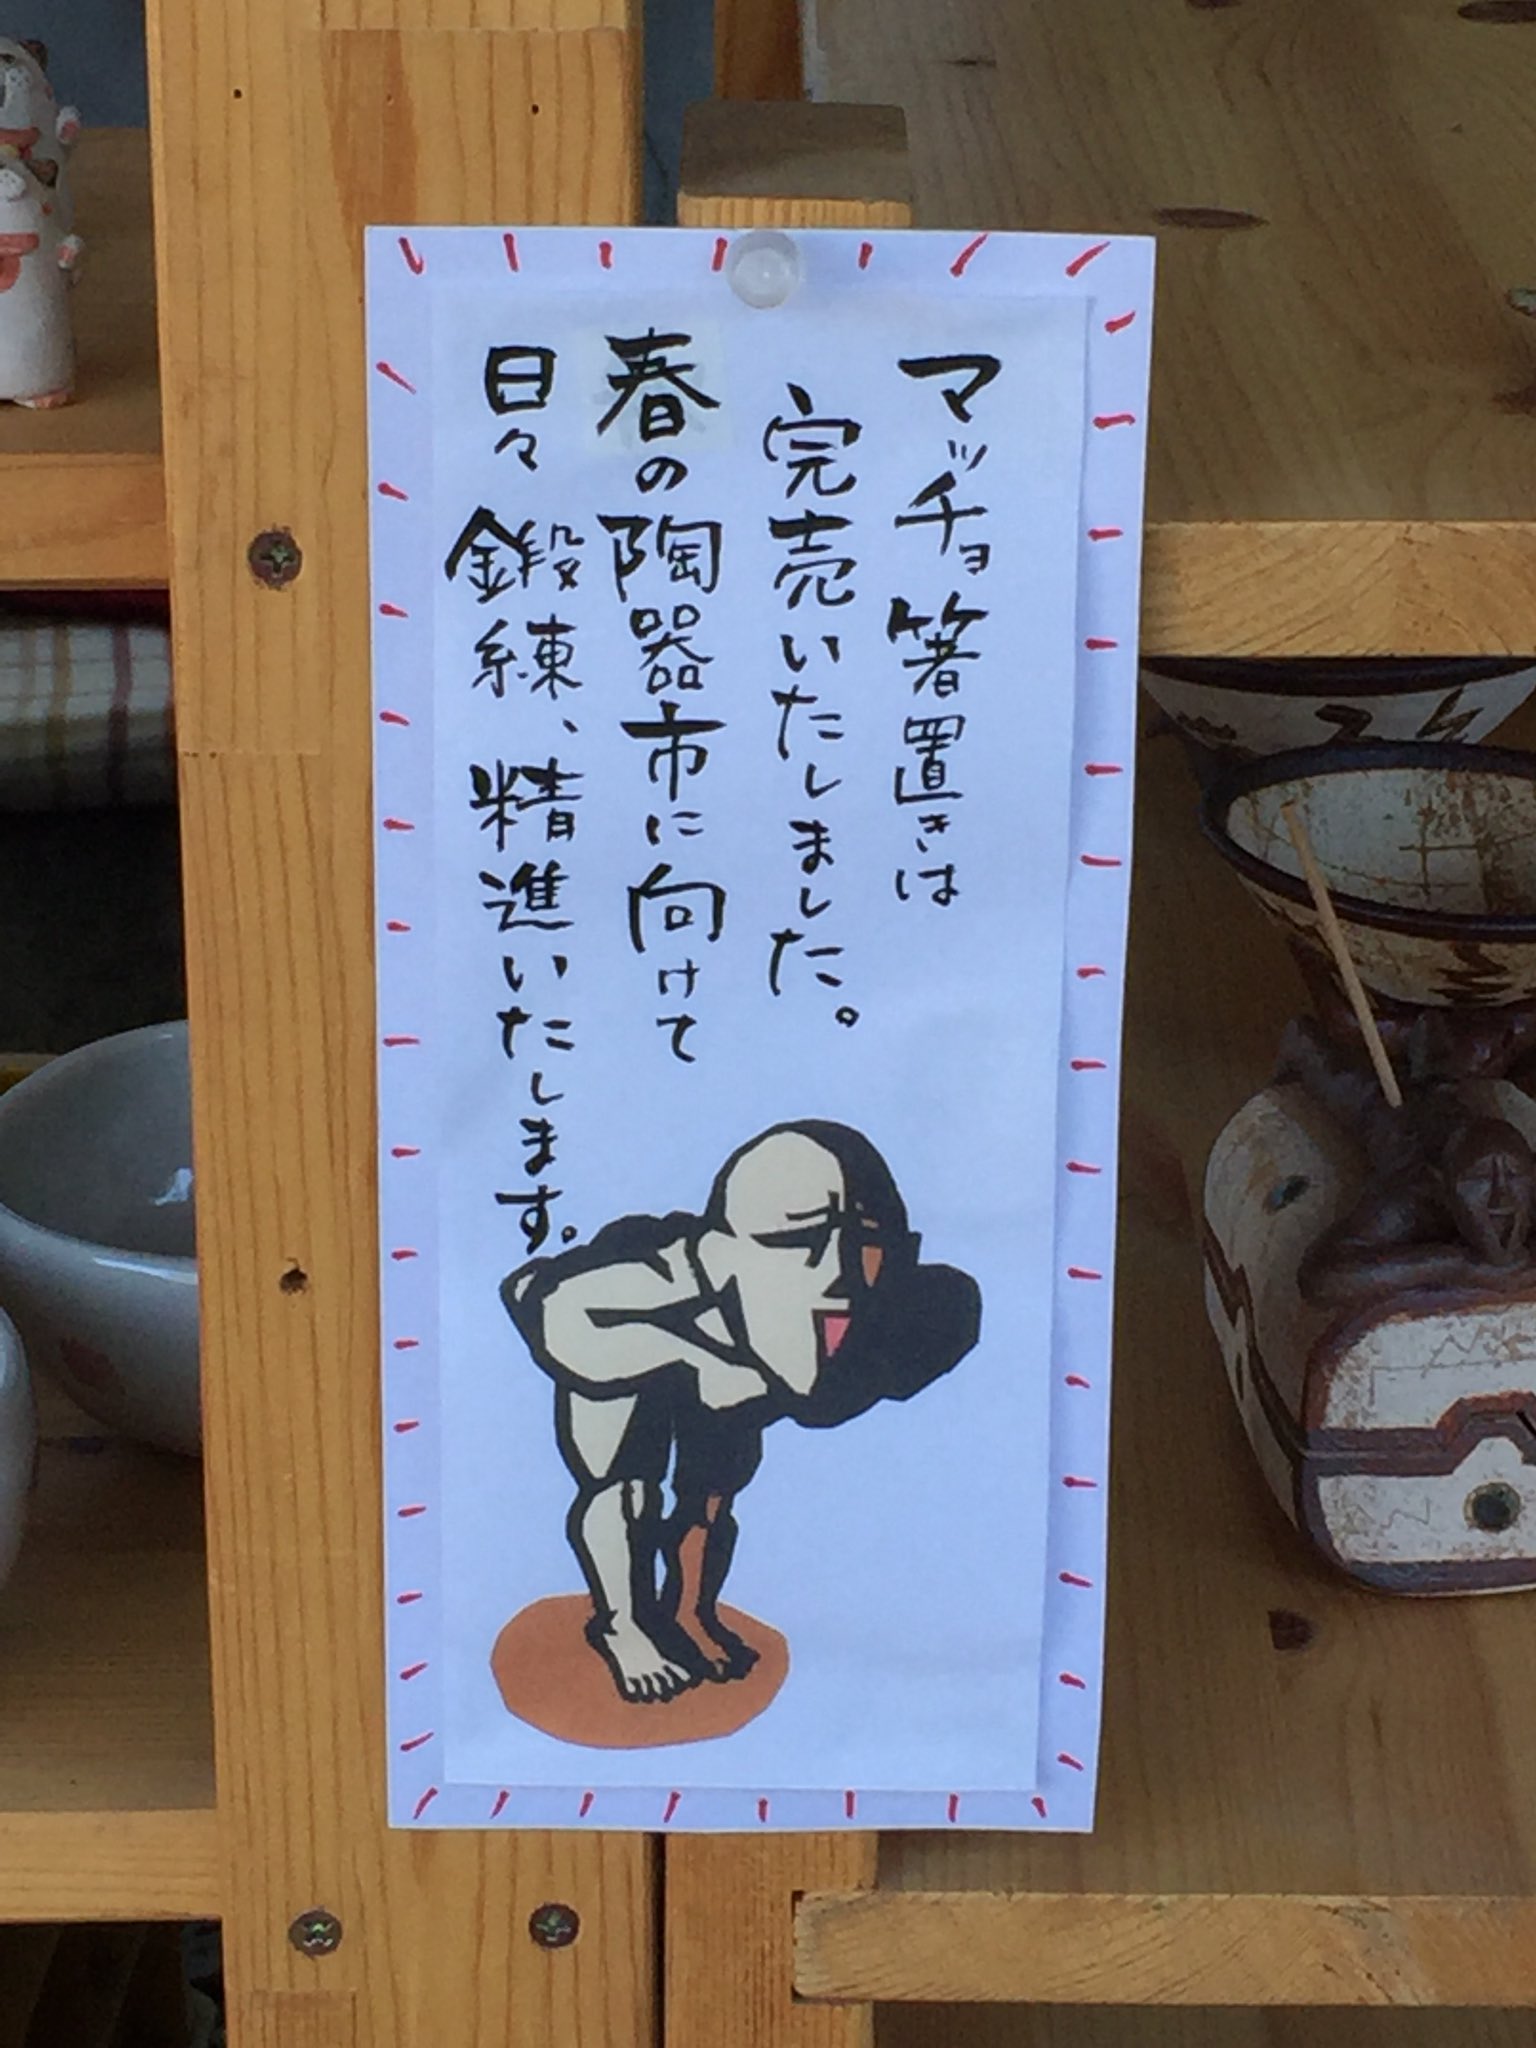 マッチョ箸置きは
完売いたしました。
春の陶器市に向けて
日々鍛練、精進いたします。